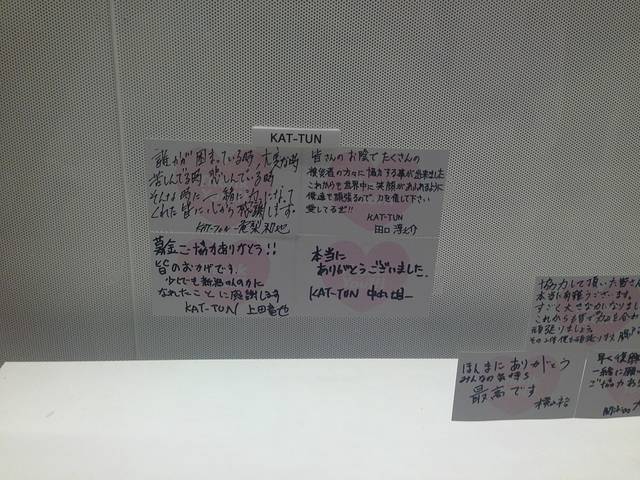 KAT-TUN
誰かが困っている時、大変な時
苦しんでる時、悲しんでいる時
そんな時に一緒に力になって
くれた皆に心から感謝します。
KAT-TUN 亀梨和也
皆さんのお陰でたくさんの
被災者の方々に協力する事が出来ました
これからも世界中に笑顔があふれるように
俺達も頑張るので、力を貸して下さい
愛してるぜ!!
KAT-TUN
田口淳之介
募金ご協力ありがとう!!
皆のおかげです。
少しでも新潟の人の力に
なれたことに感謝します
KAT-TUN 上田竜也
本当に
ありがとうございました。
KAT-TUN 中丸雄一
協力して頂いた皆さん
本当に有難うございます。
すごく大きな力になりまし
これからも皆で力を合わ
頑張りましょう
ほんまにありがとう
みんなの気持ち
最高です
横山裕
早く復興
一緒に願い
ご協力あ